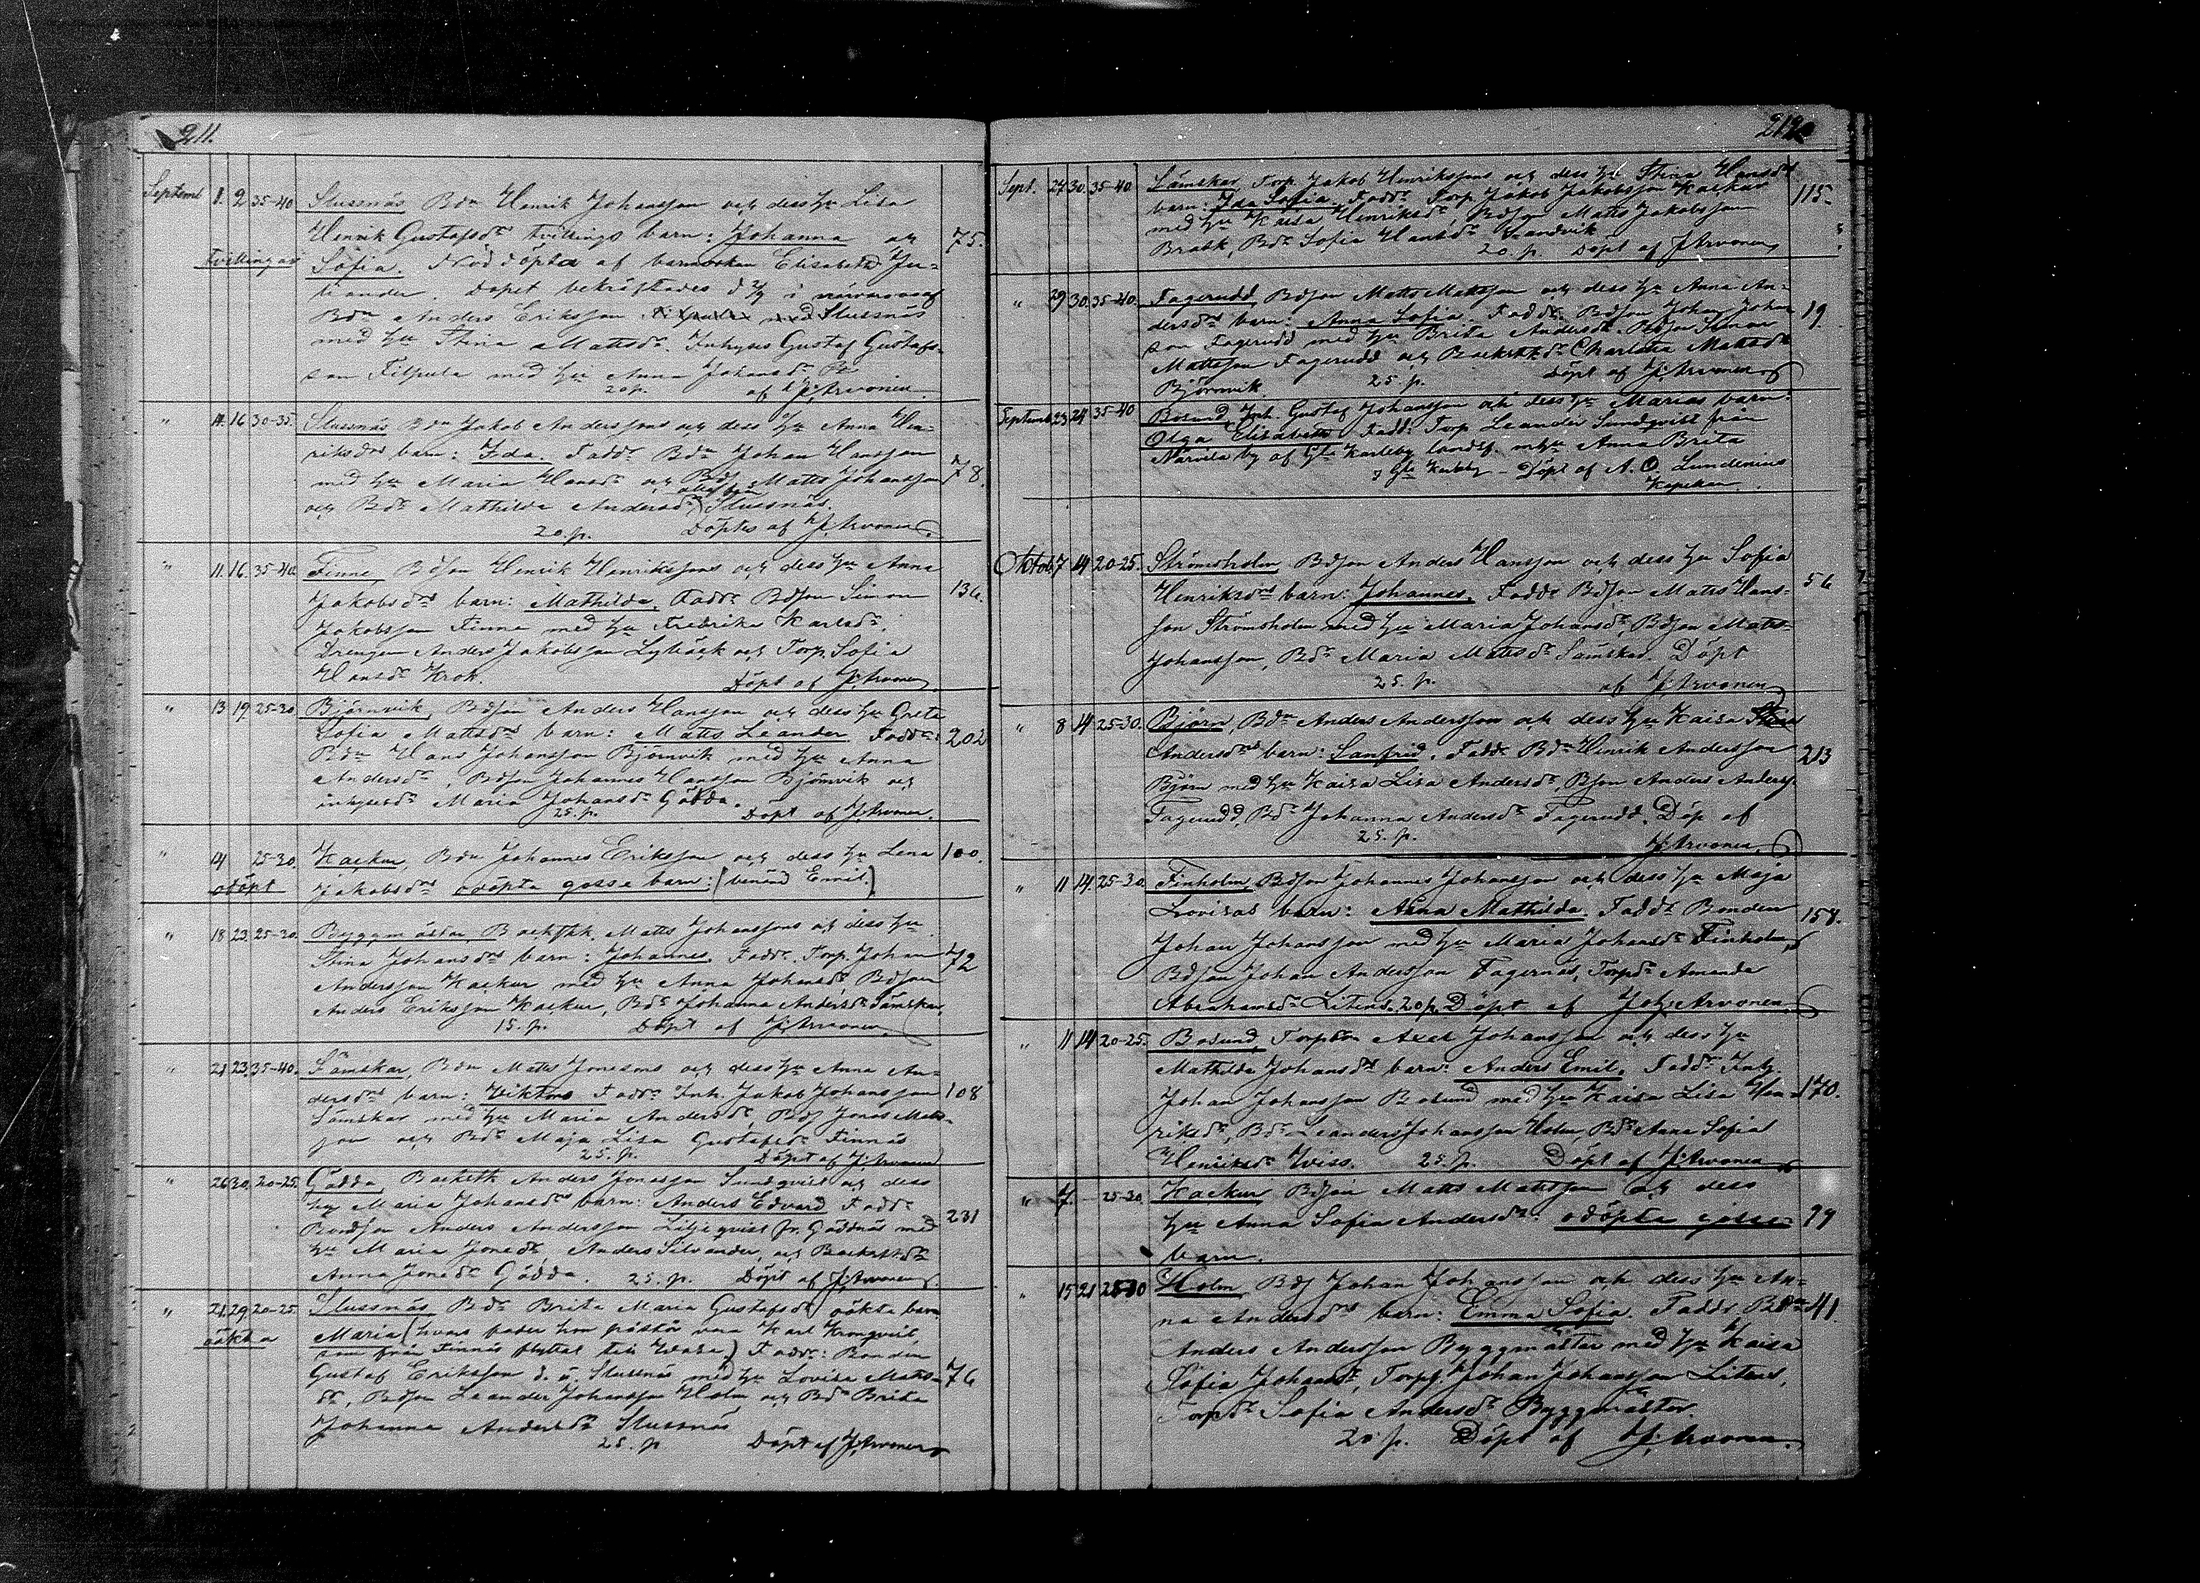 211.
Septemb 1. 2 35-40 Slussnäs Bdn Henrik Johansson och dess hu Lisa
Henrik Gustafsdrs tvillings barn: Johanna och 75.
Tvillingar Sofia. Nöddöpta af barnmorskan Elisabeth
Dopet bekräftades d 2/9 i närvaro af
Bdn Anders Eriksson Slussnäs
med hu Stina Mattsdr. Inhyses Gustaf Gustafs-
son Filpula med hu Anna Johansdr
20 p. af Jj. Arvonen.
" 11. 16 30-35. Slussnäs Bdn Jakob Anderssons och dess hu Anna Hen-
riksdrs barn: Ida. Fadd. Bdn Johan Hansson
med hu Maria Hansdr och Bdj Matts Johansson 78.
och Bdr Mathilda Andersdr Slussnäs.
20 p. Döptes af Jj. Arvonen
" 11. 16. 35-40 Finne, Bdson Henrik Henrikssons och dess hu Anna
Jakobsdrs barn: Mathilda. Faddr. Bdson Simon 136.
Jakobsson Finne med hu Fredrika Karlsdr.
Drengen Anders Jakobsson Lybäck och Torp. Sofia
Hansdr Krok. Döpt af Jj. Arvonen
" 13 19. 25-30 Björnvik, Bdson Anders Hansson och dess hu Greta
Sofia Mattsdrs barn: Matts Leander. Faddr: 202
Bdn Hans Johansson Björnvik med hu Anna
Andersdr, Bdson Johannes Hansson Björnvik och
inhysesdr Maria Johansdr Gädda.
25. p. Döpt af Jj. Arvonen.
" 14 25-30. Kackur, Bdn Johannes Eriksson och dess hu Lena 100.
odöpt Jakobsdrs odöpta gosse barn: (benämd Emil.)
" 18 23. 25-30. Byggmästar, Backstk. Matts Johanssons och dess hu
Stina Johansdrs barn: Johannes. Fadd. Torp. Johan 72
Andersson Kackur med hu Anna Johansdr, Bdson
Anders Eriksson Kackur, Bdr Johanna Andersdr Sämskar.
15. p. Döpt af Jj. Arvonen
" 21 23. 35-40. Sämskar, Bdn Matts Jonssons och dess hu Anna An-
dersdrs barn: Viktor. Faddr Inh. Jakob Johansson 108
Sämskar med hu Maria Andersdr, Bdj Jonas Matts-
son och Bdr Maja Lisa Gustafsdr Finnäs
25. p. Döpt af Jj. Arvonen
" 26 30. 20-25. Gädda, Backstk Anders Jonasson Sundqvist och dess
hu Maria Johansdrs barn: Anders Edvard. Faddr 231
Bondson Anders Andersson Liljeqvist fr. Gäddnäs med
hu Maria Jonsdr, Anders Silvander, och Backstdr
Anna Jonsdr Gädda. 25. p. Döpt af Jj. Arvonen.
" 21. 29. 20-25 Slussnäs, Bdr Brita Maria Gustafsdr oäkta barn
oäkta Maria (hvars fader hon påstår vara Karl Kronqvist
som från Finnäs flyttat till Wasa.) Faddr: Bonden
Gustaf Eriksson d. ä. Slussnäs med hu Lovisa Matts- 76
dr, Bdson Leander Johansson Holm och Bdr Brita
Johanna Andersdr Slussnäs
25. p Döpt af Jj. Arvonen
212
Sept. 24 30. 35-40. Sämskar, Torp. Jakob Henrikssons och dess hu Stina Hansdrs
barn: Ida Sofia. Faddr. Torp. Jakob Jakobsson Kackur 115.
med hu Kaisa Henriksdr, Bdson Matts Jakobsson
Bratk, Bdr Sofia Hansdr Sandvik
20. p. Döpt af Jj. Arvonen
" 29 30. 35-40. Fagerudd, Bdson Matts Mattsson och dess hu Anna An-
dersdrs barn: Anna Sofia. Faddr. Bdson Johan Johan- 19.
son Fagerudd med hu Brita Andersdr. Bdson Simon
Mattsson Fagerudd och Backstkdr Charlotta Mattsdr
Björnvik. 25 p. Döpt af Jj. Arvonen
Septemb 23 24 35-40 Bosund, Inh. Gustaf Johansson och dess hu Marias barn:
Olga Elisabeth. Fadd: Torp Leander Sundqvist från
Närvilä by af Gla Karleby landsf. m hu Anna Brita
i Gla Karleby - Döpt af A. O. Lundenius
Kapellan.
Oktob 7 14 20-25. Strömsholm, Bdson Anders Hansson och dess hu Sofia
Henriksdrs barn: Johannes. Faddr Bdson Matts Hans- 56
son Strömsholm med hu Maria Johansdr, Bdson Matts
Johansson, Bdr Maria Mattsdr Sämskar. Döpt
25. p. af Jj. Arvonen
" 8 14 25-30. Björn, Bdn Anders Anderssons och dess hu Kaisa
Andersdrs barn: Sanfrid. Faddr Bdn Henrik Andersson 213
Björn med hu Kaisa Lisa Andersdr, Bson Anders Anderss.
Fagerudd, Bdr Johanna Andersdr Fagerudd. Döp af
25. p. Jj. Arvonen.
" 11 14. 25-30. Finholm, Bdson Johannes Johansson och dess hu Maja
Lovisas barn: Anna Mathilda. Faddr Bonden 158.
Johan Johansson med hu Maria Johansdr Finholm,
Bdson Johan Andersson Fagernäs, Torpdr Amanda
Abrahamsdr Litens. 20 p. Döpt af Joh: Arvonen.
" 11 14 20-25. Bosund, Torpson Axel Johansson och dess hu
Mathilda Johansdrs barn: Anders Emil. Faddr Inh.
Johan Johansson Bosund med hu Kaisa Lisa Hen- 170.
riksdr, Bdr Leander Johansson Holm, Bdr Anna Sofia
Henriksdr Wiss. 25. p. Döpt af Jj. Arvonen
" 7. 25-30. Kackur Bdson Matts Mattsson och dess
hu Anna Sofias Andersdrs odöpta gosse- 99
barn.
" 15 21 25-30 Holm, Bdj Johan Johansson och dess hu An-
na Andersdrs barn: Emma Sofia. Faddr. Bdn 41.
Anders Andersson Byggmästar med hu Kaisa
Sofia Johansdr, Torpj. Johan Johansson Litens,
Torpdr Sofia Andersdr Byggmästar.
20 p. Döpt af Jj. Arvonen.